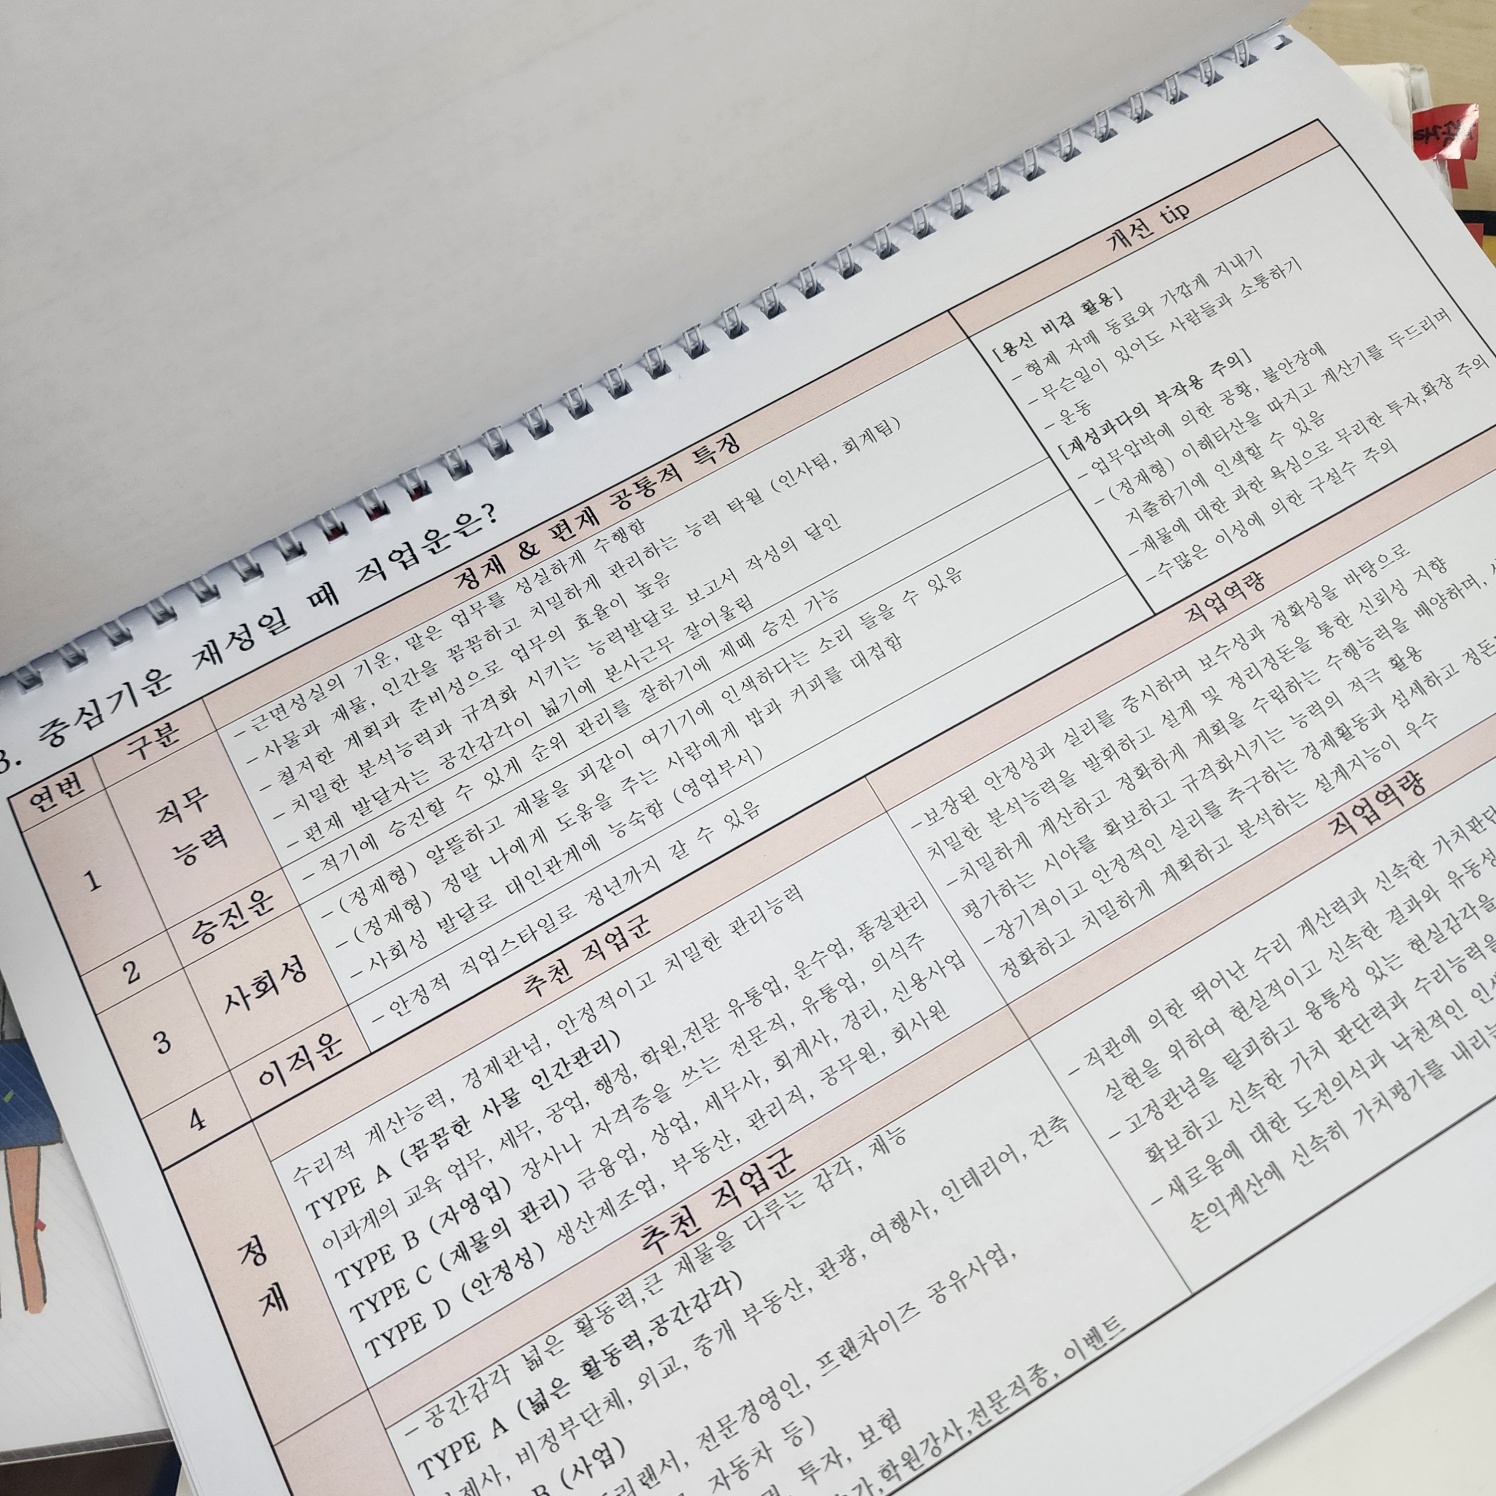 3. 중심기운 재성일 때 직업운은?
연번
구분
정재 & 편재 공통적 특징
개선 tip
1
직무
능력
-근면성실의 기운, 맡은 업무를 성실하게 수행함
-사물과 재물, 인간을 꼼꼼하고 치밀하게 관리하는 능력 탁월 (인사팀, 회계팀)
-철저한 계획과 준비성으로 업무의 효율이 높음
-치밀한 분석능력과 규격화 시키는 능력발달로 보고서 작성의 달인
-편재 발달자는 공간감각이 넓기에 본사근무 잘어울림
2
승진운
-적기에 승진할 수 있게 순위 관리를 잘하기에 제때 승진 가능
3
사회성
-(정재형) 알뜰하고 재물을 피같이 여기기에 인색하다는 소리 들을 수 있음
-(정재형) 정말 나에게 도움을 주는 사람에게 밥과 커피를 대접함
-사회성 발달로 대인관계에 능숙함 (영업부서)
4
이직운
-안정적 직업스타일로 정년까지 갈 수 있음
[용신 비겁 활용]
-형제 자매 동료와 가깝게 지내기
-무슨일이 있어도 사람들과 소통하기
-운동
[재성과다의 부작용 주의]
-업무압박에 의한 공황, 불안장애
-(정재형) 이해타산을 따지고 계산기를 두드리며
지출하기에 인색할 수 있음
-재물에 대한 과한 욕심으로 무리한 투자,확장 주의
-수많은 이성에 의한 구설수 주의
정
재
추천 직업군
수리적 계산능력, 경제관념, 안정적이고 치밀한 관리능력
TYPE A (꼼꼼한 사물 인간관리)
이과계의 교육 업무, 세무, 공업, 행정, 학원,전문 유통업, 운수업, 품질관리
TYPE B (자영업) 장사나 자격증을 쓰는 전문직, 유통업, 의식주
TYPE C (재물의 관리) 금융업, 상업, 세무사, 회계사, 경리, 신용사업
TYPE D (안정성) 생산제조업, 부동산, 관리직, 공무원, 회사원
직업역량
-보장된 안정성과 실리를 중시하며 보수성과 정확성을 바탕으로
치밀한 분석능력을 발휘하고 설계 및 정리정돈을 통한 신뢰성 지향
-치밀하게 계산하고 정확하게 계획을 수립하는 수행능력을 배양하며,
평가하는 시야를 확보하고 규격화시키는 능력의 적극 활용
-장기적이고 안정적인 실리를 추구하는 경제활동과 섬세하고
정확하고 치밀하게 계획하고 분석하는 설계지능이 우수
추천 직업군
-공간감각 넓은 활동력,큰 재물을 다루는 감각, 재능
TYPE A (넓은 활동력,공간감각)
비정부단체, 외교, 중개 부동산, 관광, 여행사, 인테리어, 건축
B (사업)
전문경영인, 프랜차이즈 공유사업,
자동차 등)
투자, 보험
학원강사,전문직종, 이벤트
직업역량
-직관에 의한 뛰어난 수리 계산력과 신속한
실현을 위하여 현실적이고 신속한 결과와
-고정관념을 탈피하고 융통성 있는 현실감각을
확보하고 신속한 가치 판단력과 수리능력을
-새로움에 대한 도전의식과 낙천적인
손익계산에 신속히 가치평가를 내리는